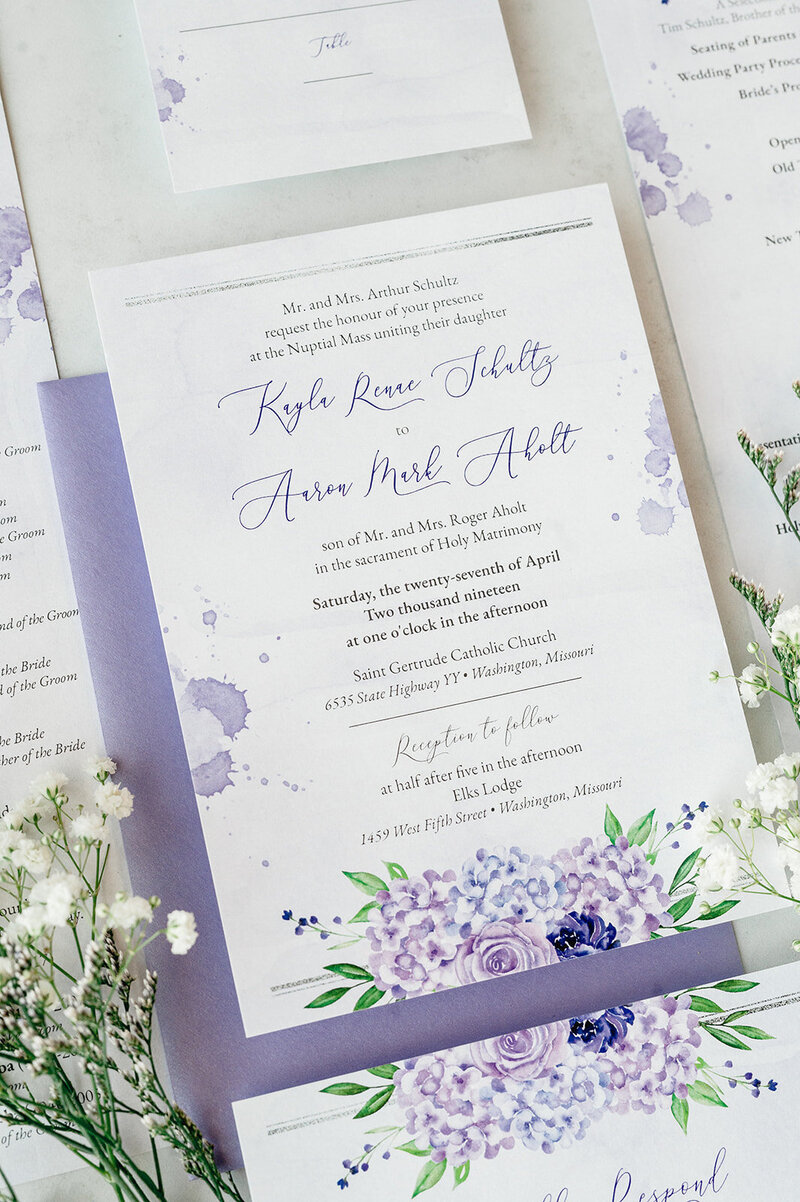 Table
A Selection
Tim Schultz, Brother of the
Seating of Parents
Wedding Party Proce
Bride's Pro
Open
Old
New T
esentati
Ho
Mr. and Mrs. Arthur Schultz
request the honour of your presence
at the Nuptial Mass uniting their daughter
Kayla Renae Schultz
to
Aaron Mark Aholt
son of Mr. and Mrs. Roger Aholt
in the sacrament of Holy Matrimony
Saturday, the twenty-seventh of April
Two thousand nineteen
at one o'clock in the afternoon
Saint Gertrude Catholic Church
6535 State Highway YY • Washington, Missouri
Reception to follow
at half after five in the afternoon
Elks Lodge
1459 West Fifth Street • Washington, Missouri
e Groom
oom
Groom
nd of the Groom
the Bride
d of the Groom
he Bride
ther of the Bride
our
day.
of the
Respond